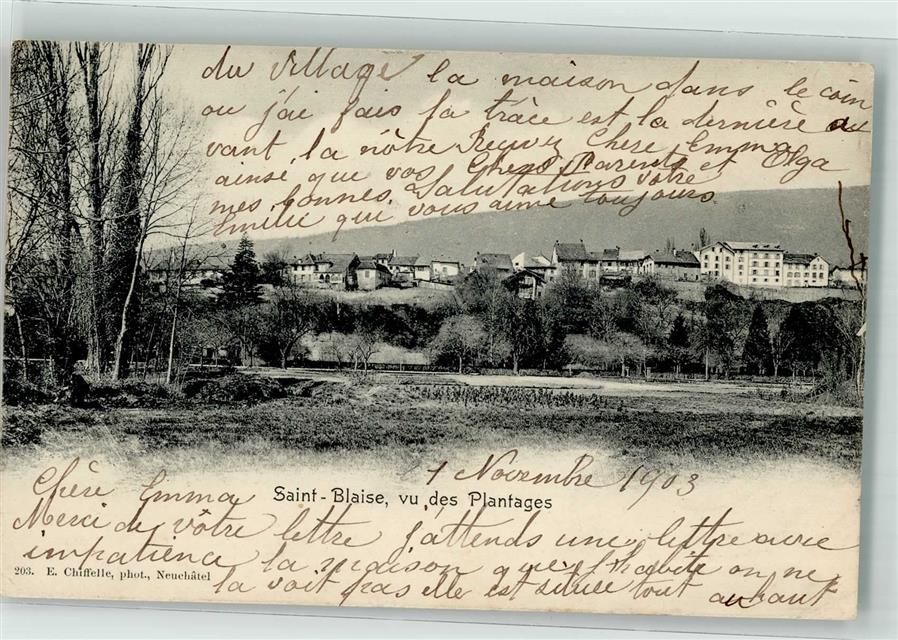 du Village la maison dans le coin
ou j'ai fais la trace est la dernière du
vant, la nôtre Reçevez Chère Emma
ainsi que vos Chers Parents et Olga
mes bonnes Salutations votre
Emilie qui vous aime toujours.
1 Novembre 1903
Chère Emma
Saint-Blaise, vu des Plantages
Merci de vôtre lettre j'attends une lettre avec
impatience la maison que j'habite on ne
203. E. Chiffelle, phot., Neuchâtel
la voit pas elle est située tout auhaut